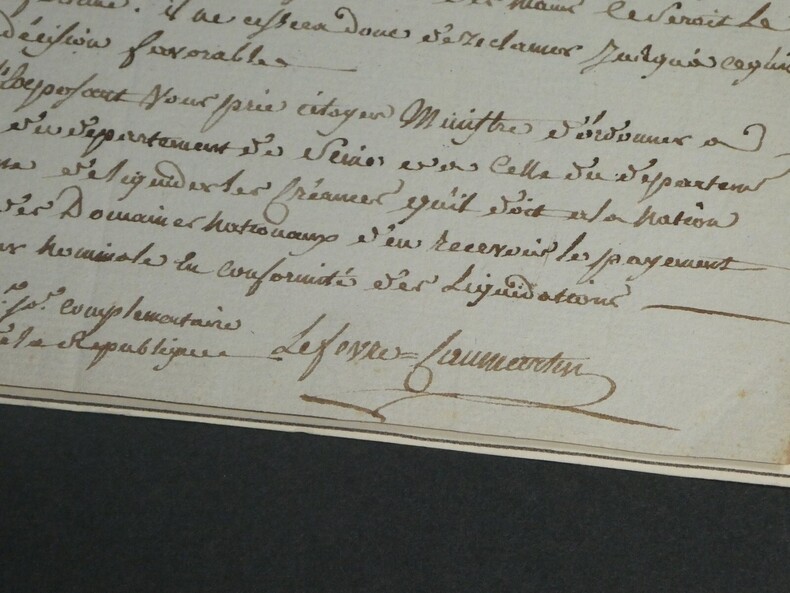 des mains ce seroit le
il ne cessera donc de reclamer jusqu'a ce qu'un
décision favorable
L'exposant vous prie citoyen Ministre d'ordonner a
du département de Seine et a Celle du départem
de liquider les Créances qu'il doit a la nation
des Domaines nationaux d'en recevoir le payement
nominale en conformité des Liquidations
jor complementaire
de la Republique Lefevre=Caumartin